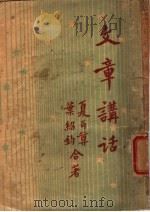 文章講话
夏丏尊
葉紹鈞
合著